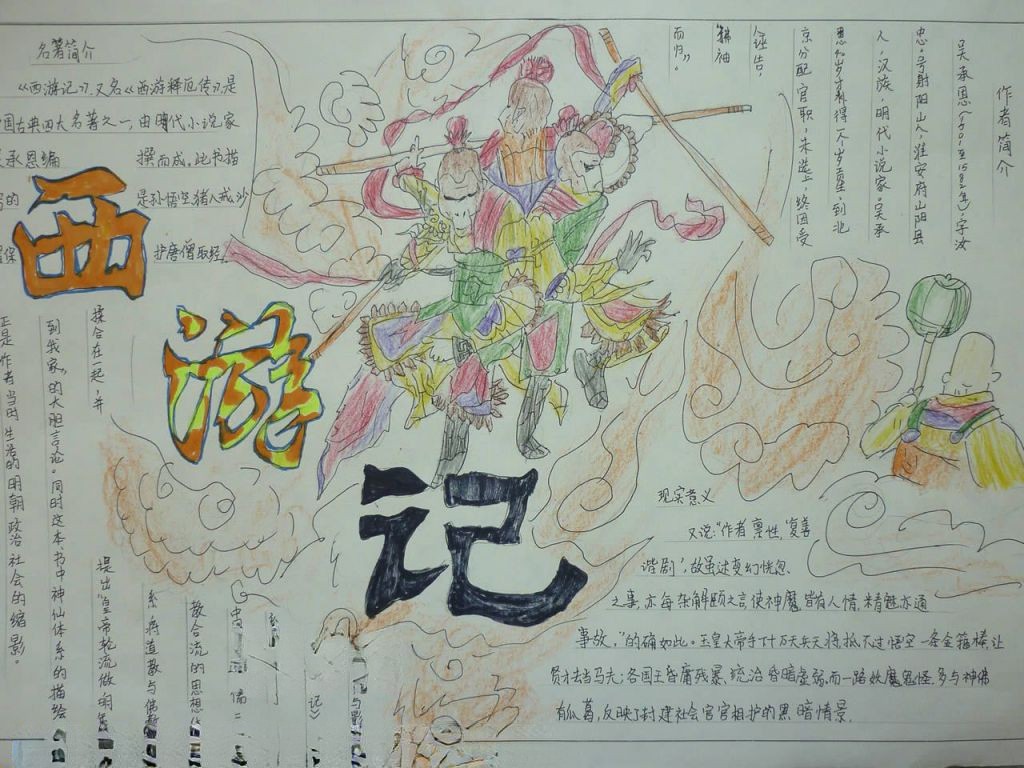 名著简介
《西游记》,又名《西游释厄传》,是
国古典四大名著之一,由明代小说家
承恩编撰而成,此书描
的是孙悟空,猪八戒,沙
保护唐僧取经
西
游
记
作者简介
吴承恩(1501至1582年),字汝
忠。号射阳山人,淮安府山阳县
人,汉族,明代小说家。吴承
恩40岁才补得一个岁贡生,到北
京分配官职,未选上,终因受
人诬告,
拂袖
而归”。
现实意义
又说:“作者禀性,‘复善
谐剧’,故虽述变幻恍忽
之事,亦每杂解颐之言,使神魔皆有人情,精魅亦通
事故,”的确如此。玉皇大帝手下十万天兵天将抵不过悟空一条金箍棒,让
贤才去当马夫;各国王昏庸残暴,统治昏暗虚弱,而一路妖魔鬼怪多与神佛
有瓜葛,反映了封建社会官官相护的黑暗情景.
教合流的思想
系,将道教与佛教
揉合在一起,并
提出“皇帝轮流做,明年
到我家”的大胆言论。同时这本书中神仙体系的描绘
正是作者当时生活的明朝政治社会的缩影。